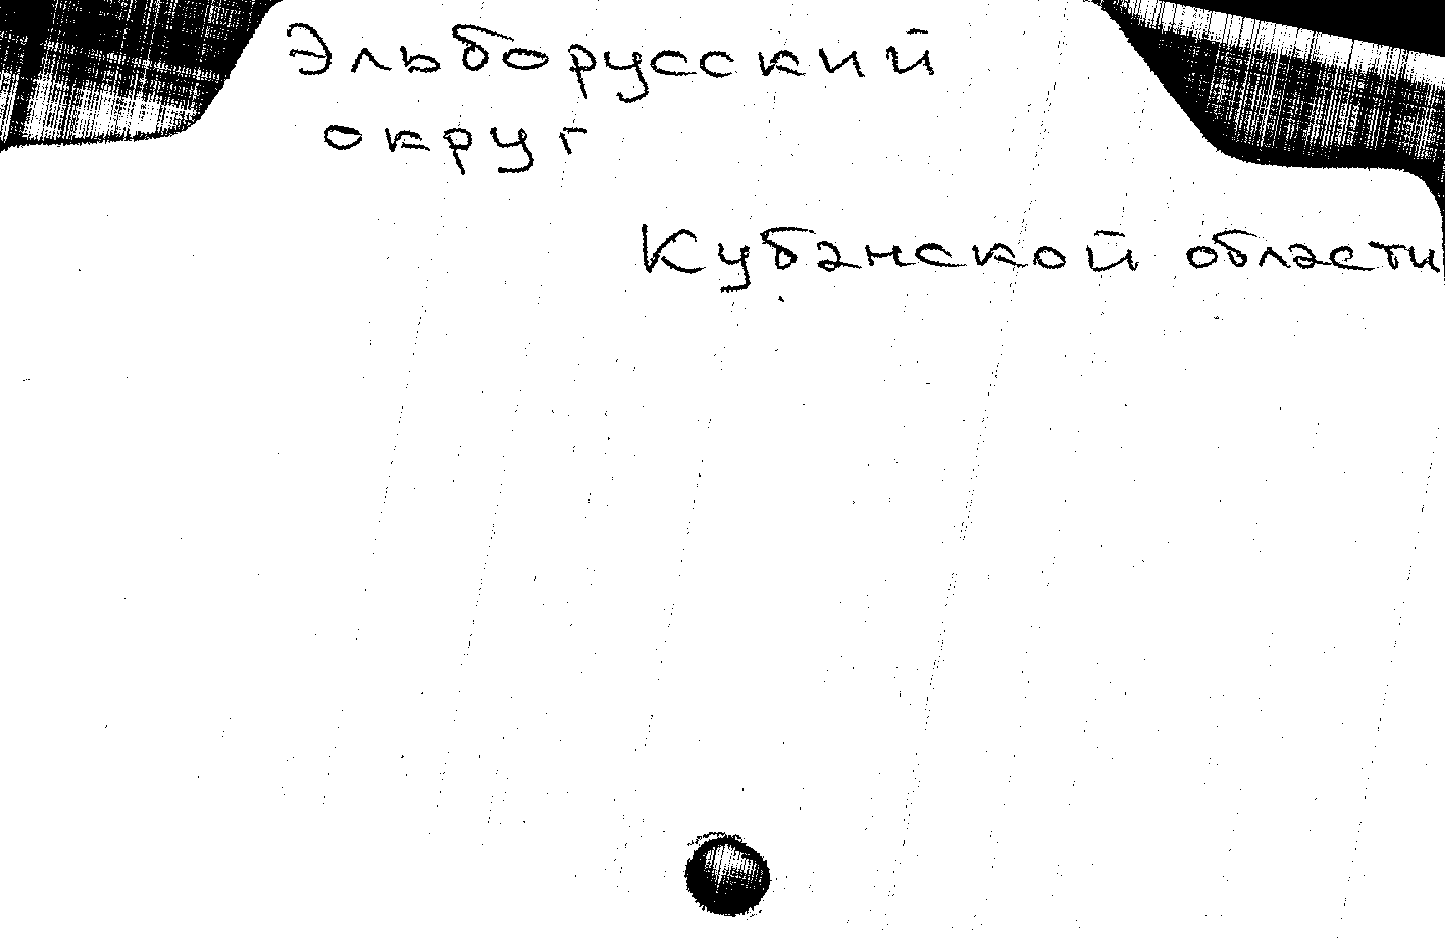 Эльборусский
округ
Кубанской области